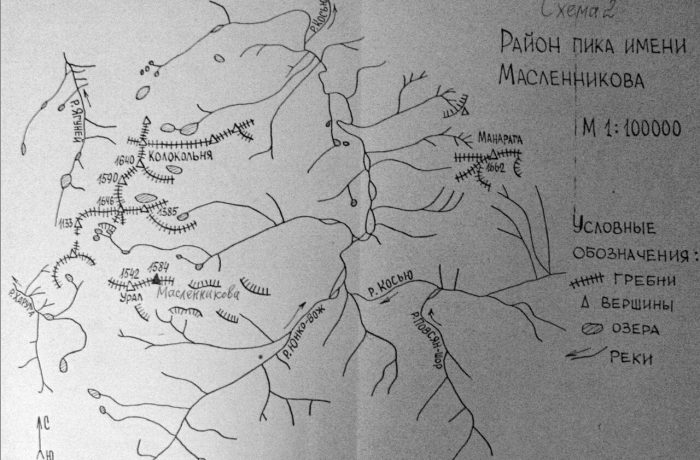 Схема 2
Район пика имени
Масленникова
М 1:100000
р. Косью
р. Ягуней
Колокольня
1640
1590
1646
1385
1133
Манарага
1662
1542
1584
Урал
Масленникова
р. Харута
р. Косью
р. Юнко-вож
р. Повсян-шор
Условные
обозначения:
гребни
вершины
озера
реки
С
Ю